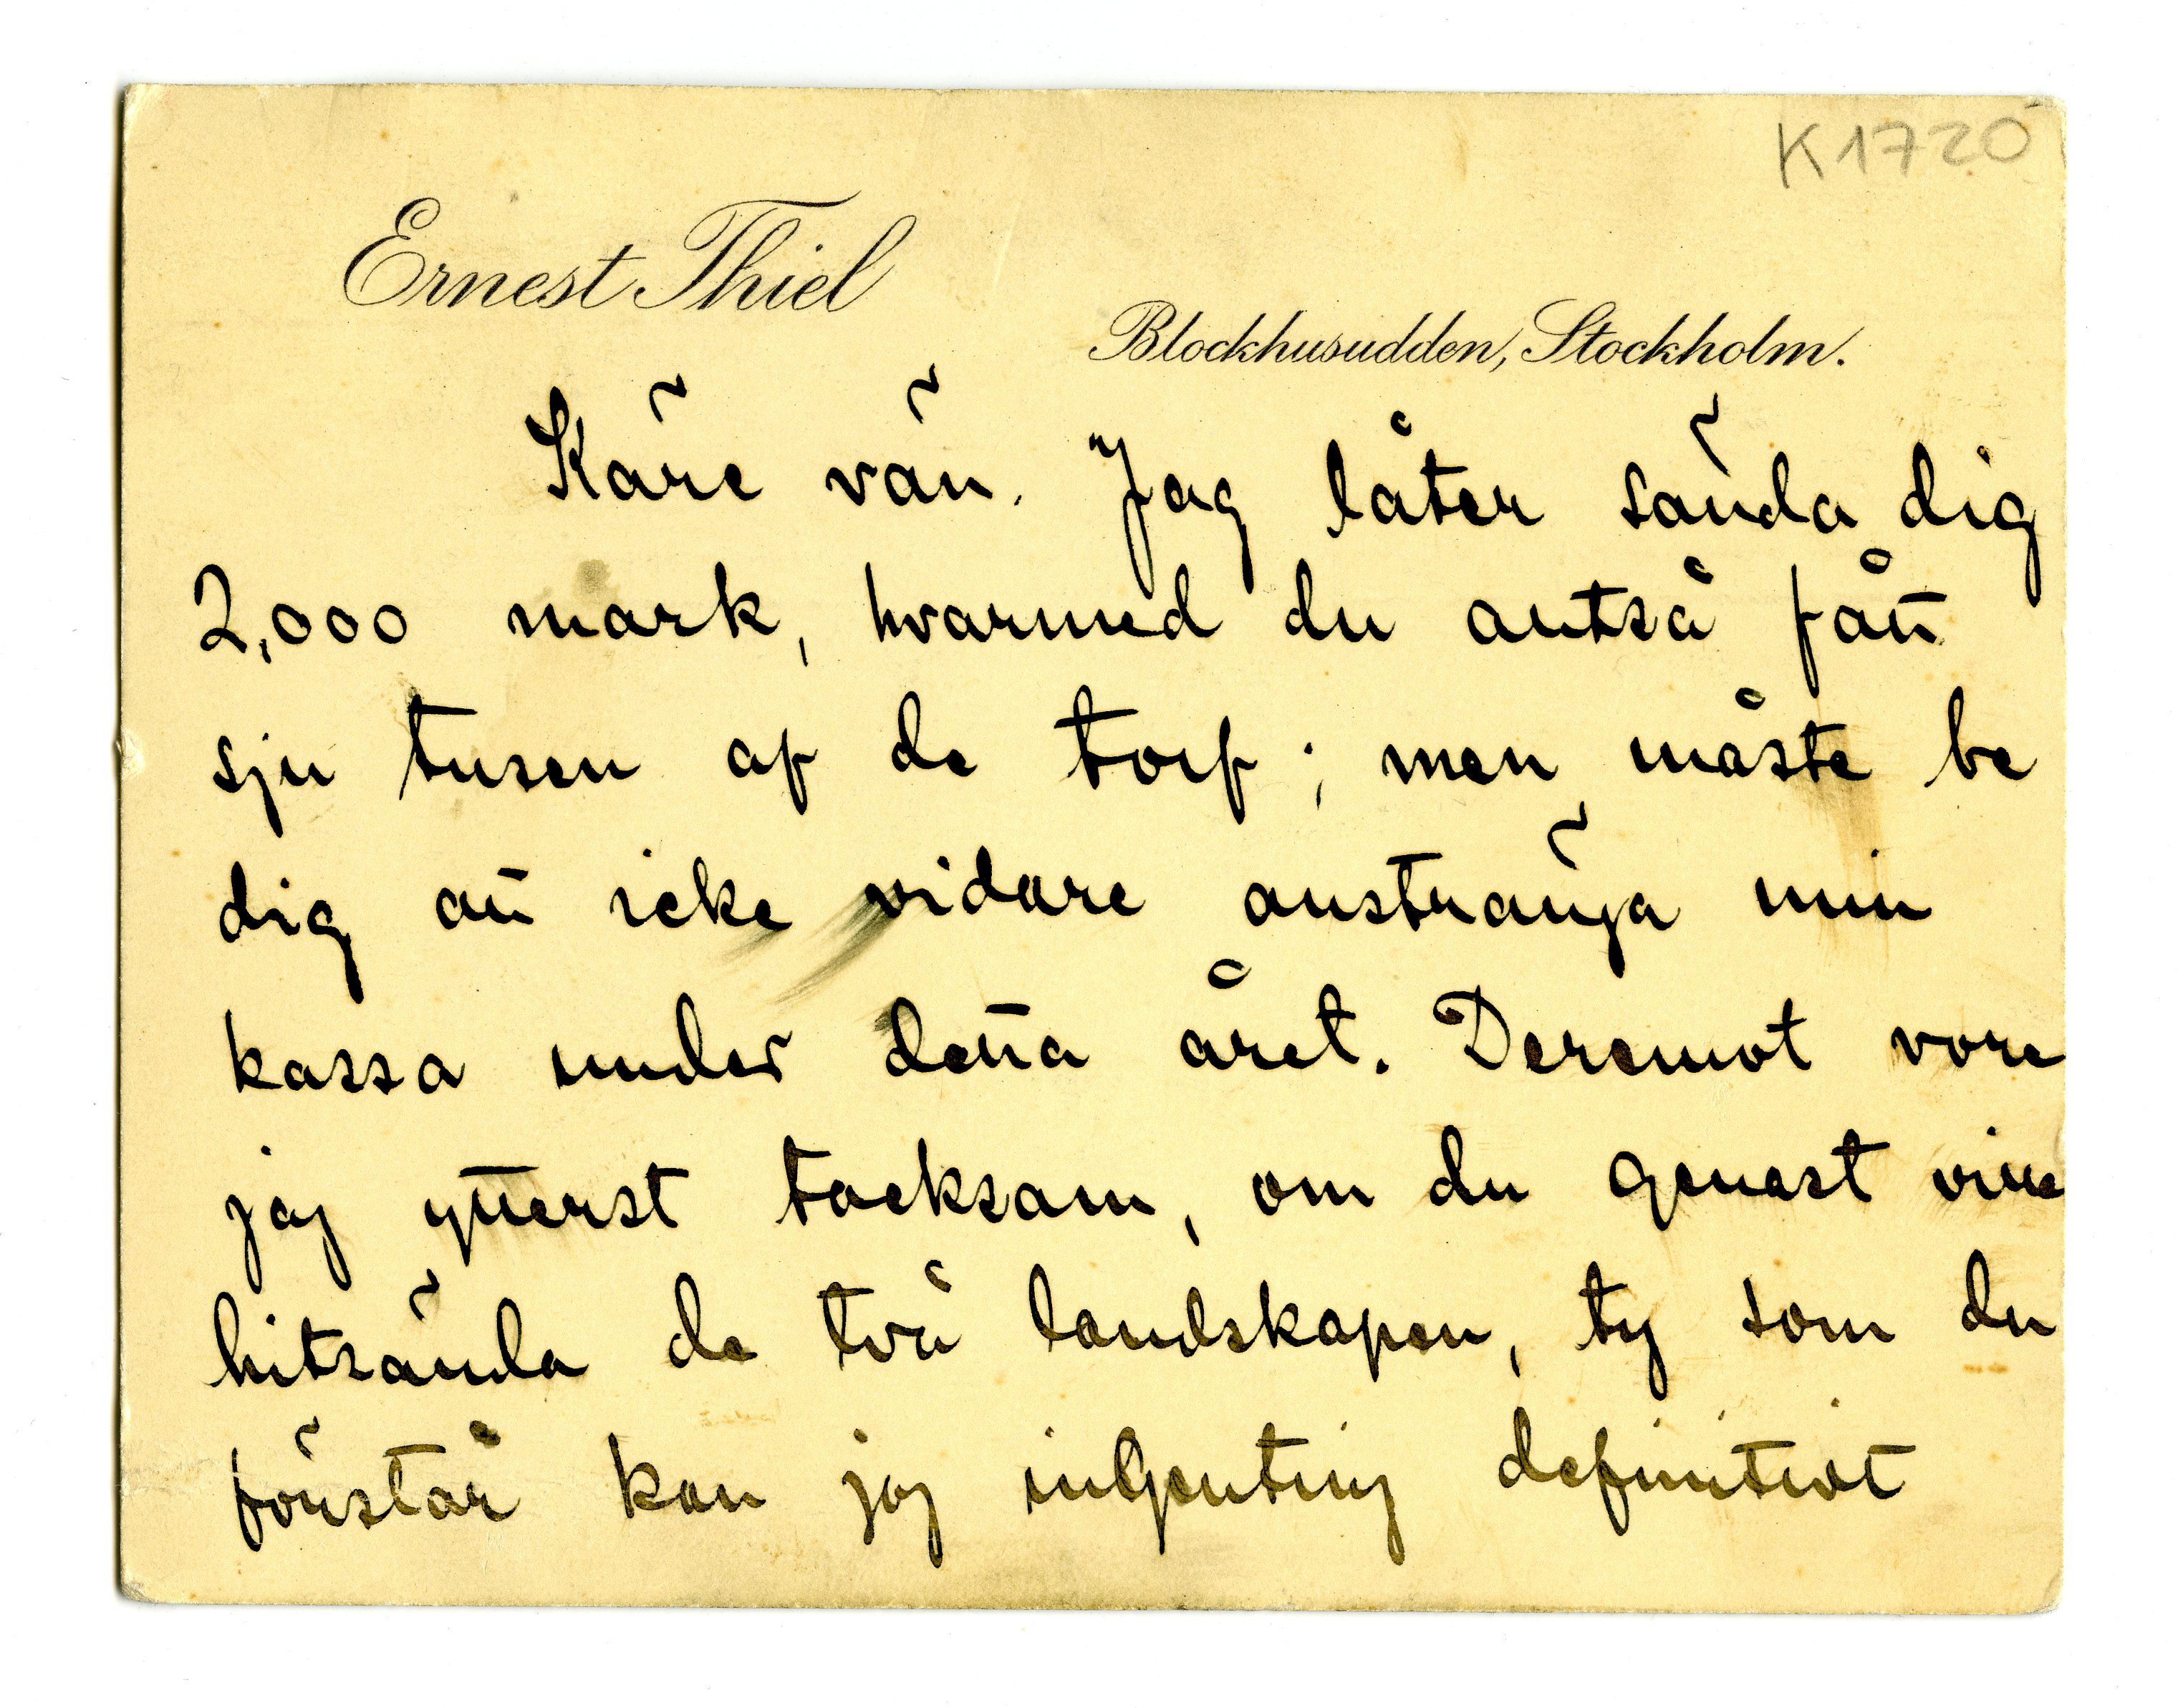 K1720
Ernest Thiel
Blockhusudden, Stockholm.
Käre vän. Jag låter sända dig
2,000 mark, hvarmed du altså fått
sju tusen af de tolf; men måste be
dig att icke vidare anstränga min
kassa under detta året. Deremot vore
jag ytterst tacksam, om du genast ville
hitsända de två landskapen, ty som du
förstår kan jag ingenting definitivt